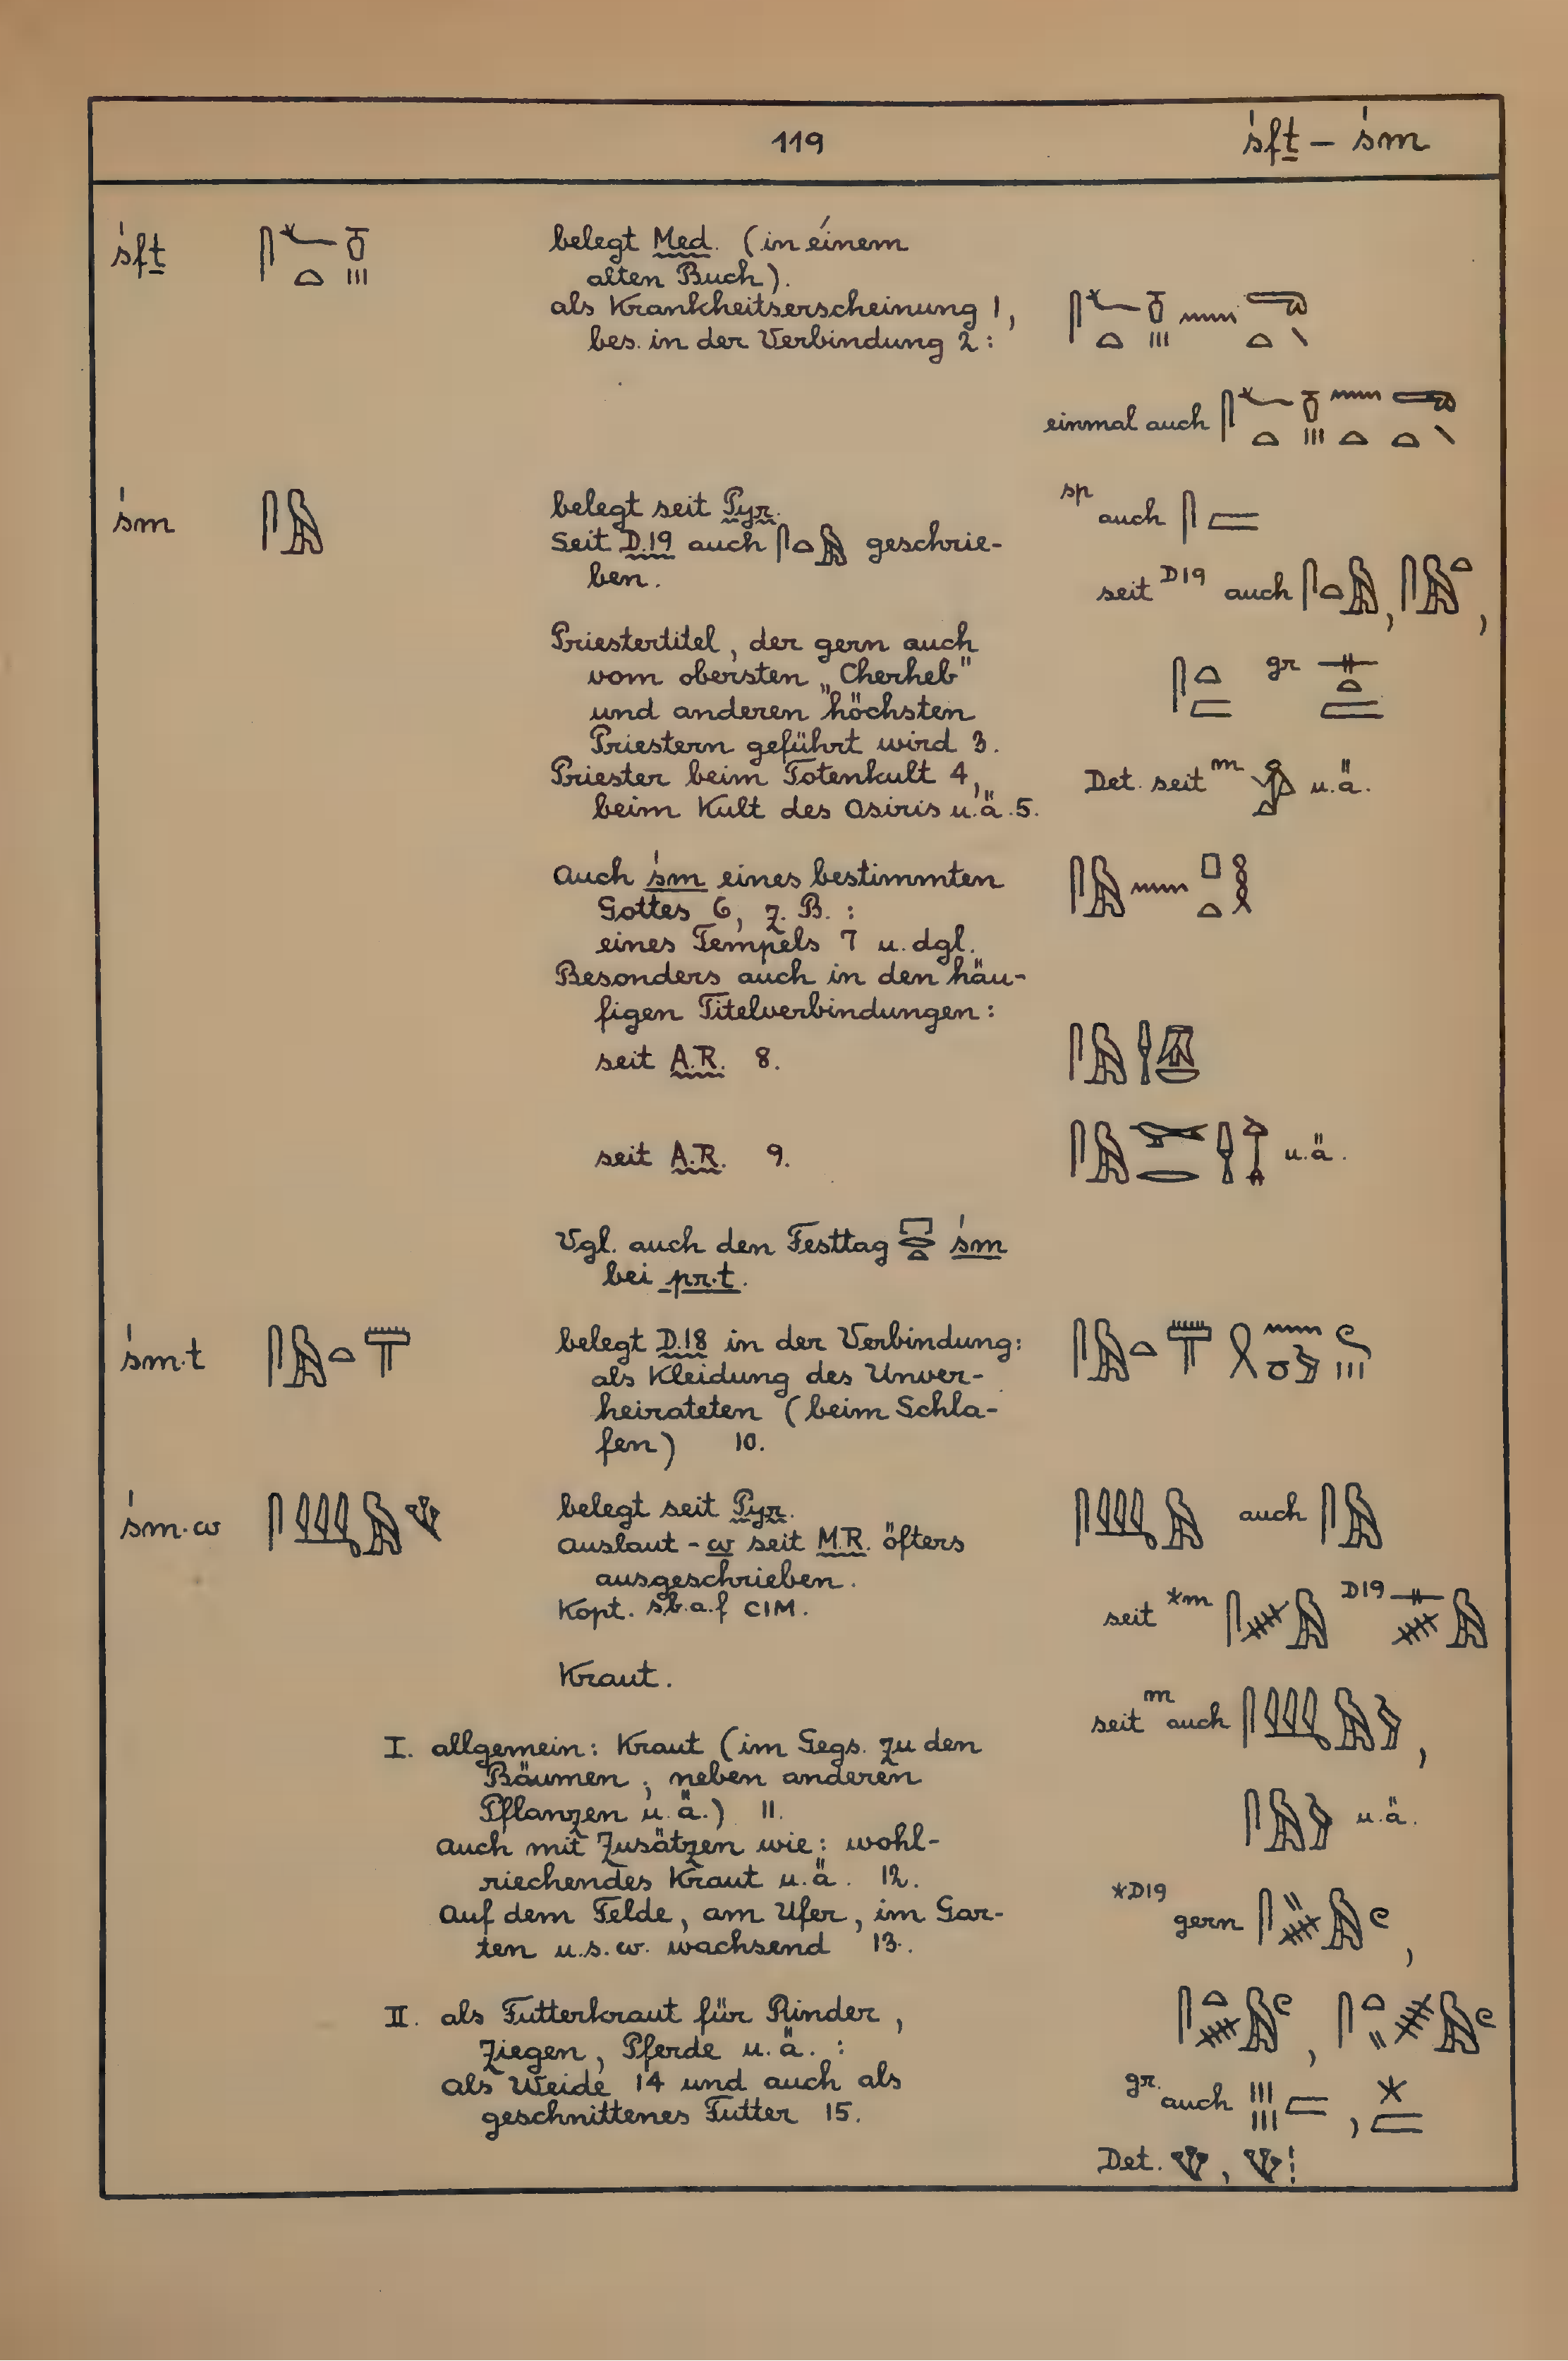 119
śfṯ – śm
śfṯ
belegt Med. (in éinem
alten Buch).
als Krankheitserscheinung 1,
bes. in der Verbindung 2:
einmal auch
śm
belegt seit Pyr.
Seit D.19 auch geschrie-
ben.
sp auch
seit D19 auch , ,
Priestertitel, der gern auch
vom obersten „Cherheb"
und anderen höchsten
Priestern geführt wird 3.
gr
Priester beim Totenkult 4,
beim Kult des Osiris u.ä. 5.
Det. seit m u.ä.
Auch śm eines bestimmten
Gottes 6, z. B. :
eines Tempels 7 u. dgl.
Besonders auch in den häu-
figen Titelverbindungen:
seit A.R. 8.
seit A.R. 9.
u.ä.
Vgl. auch den Festtag śm
bei pr.t.
śm.t
belegt D.18 in der Verbindung:
als Kleidung des Unver-
heirateten (beim Schla-
fen) 10.
śm.w
belegt seit Pyr.
Auslaut -w seit M.R. öfters
ausgeschrieben.
Kopt. sb.a.f ⲤⲒⲘ.
auch
seit *m D19
Kraut.
seit m auch ,
u.ä.
I. allgemein: Kraut (im Gegs. zu den
Bäumen; neben anderen
Pflanzen u.ä.) 11.
Auch mit Zusätzen wie: wohl-
riechendes Kraut u.ä. 12.
Auf dem Felde, am Ufer, im Gar-
ten u.s.w. wachsend 13.
*D19 gern ,
,
II. als Futterkraut für Rinder,
Ziegen, Pferde u.ä. :
als Weide 14 und auch als
geschnittenes Futter 15.
gr. auch ,
Det. ,